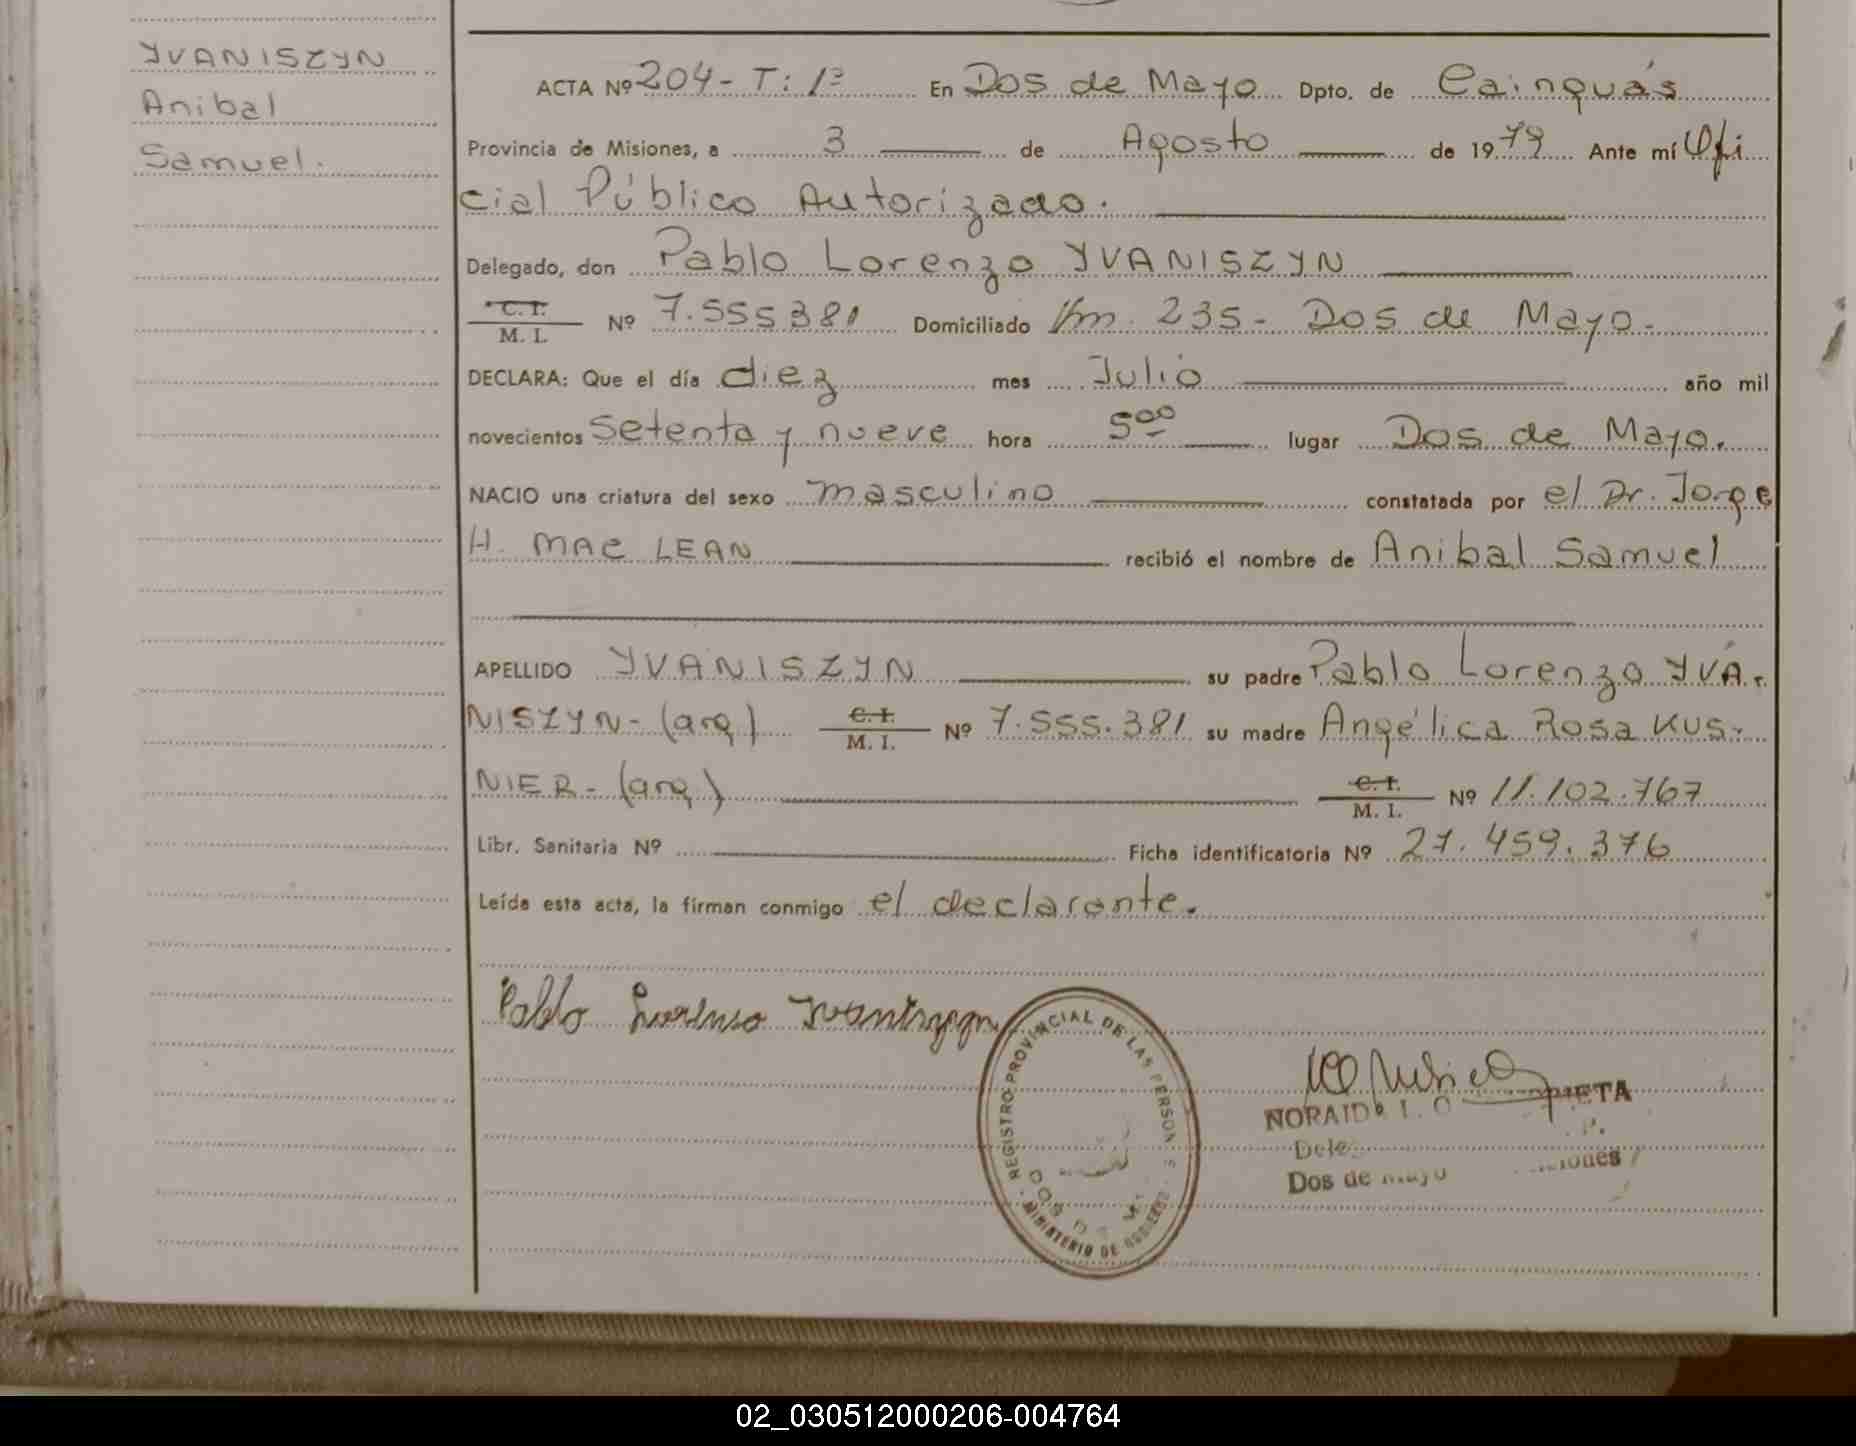 YVANISZYN
Anibal
Samuel.
ACTA Nº 204- T: 1º En Dos de Mayo Dpto. de Cainguás
Provincia de Misiones, a 3 de Agosto de 1979 Ante mí Ofi
cial Público Autorizado.
Delegado, don Pablo Lorenzo YVANISZYN
C. I.
M. I. Nº 7.555381 Domiciliado Km. 235- Dos de Mayo-
DECLARA: Que el día diez mes Julio año mil
novecientos setenta y nueve hora 5ºº lugar Dos de Mayo.
NACIO una criatura del sexo masculino constatada por el Dr. Jorge
H. MAC LEAN recibió el nombre de Anibal Samuel
APELLIDO YVANISZYN su padre Pablo Lorenzo YVA-
NISZYN-(arg) C. I. M. I. Nº 7.555.381 su madre Angélica Rosa KUS-
NIER-(arg) C. I. M. I. Nº 11.102.767
Libr. Sanitaria Nº Ficha identificatoria Nº 27.459.376
Leída esta acta, la firman conmigo el declarante.
Pablo Lorenso
REGISTRO PROVINCIAL DE LAS PERSONAS
MINISTERIO DE GOBIERNO
NORAIDA I.
Dos de Mayo
02_030512000206-004764